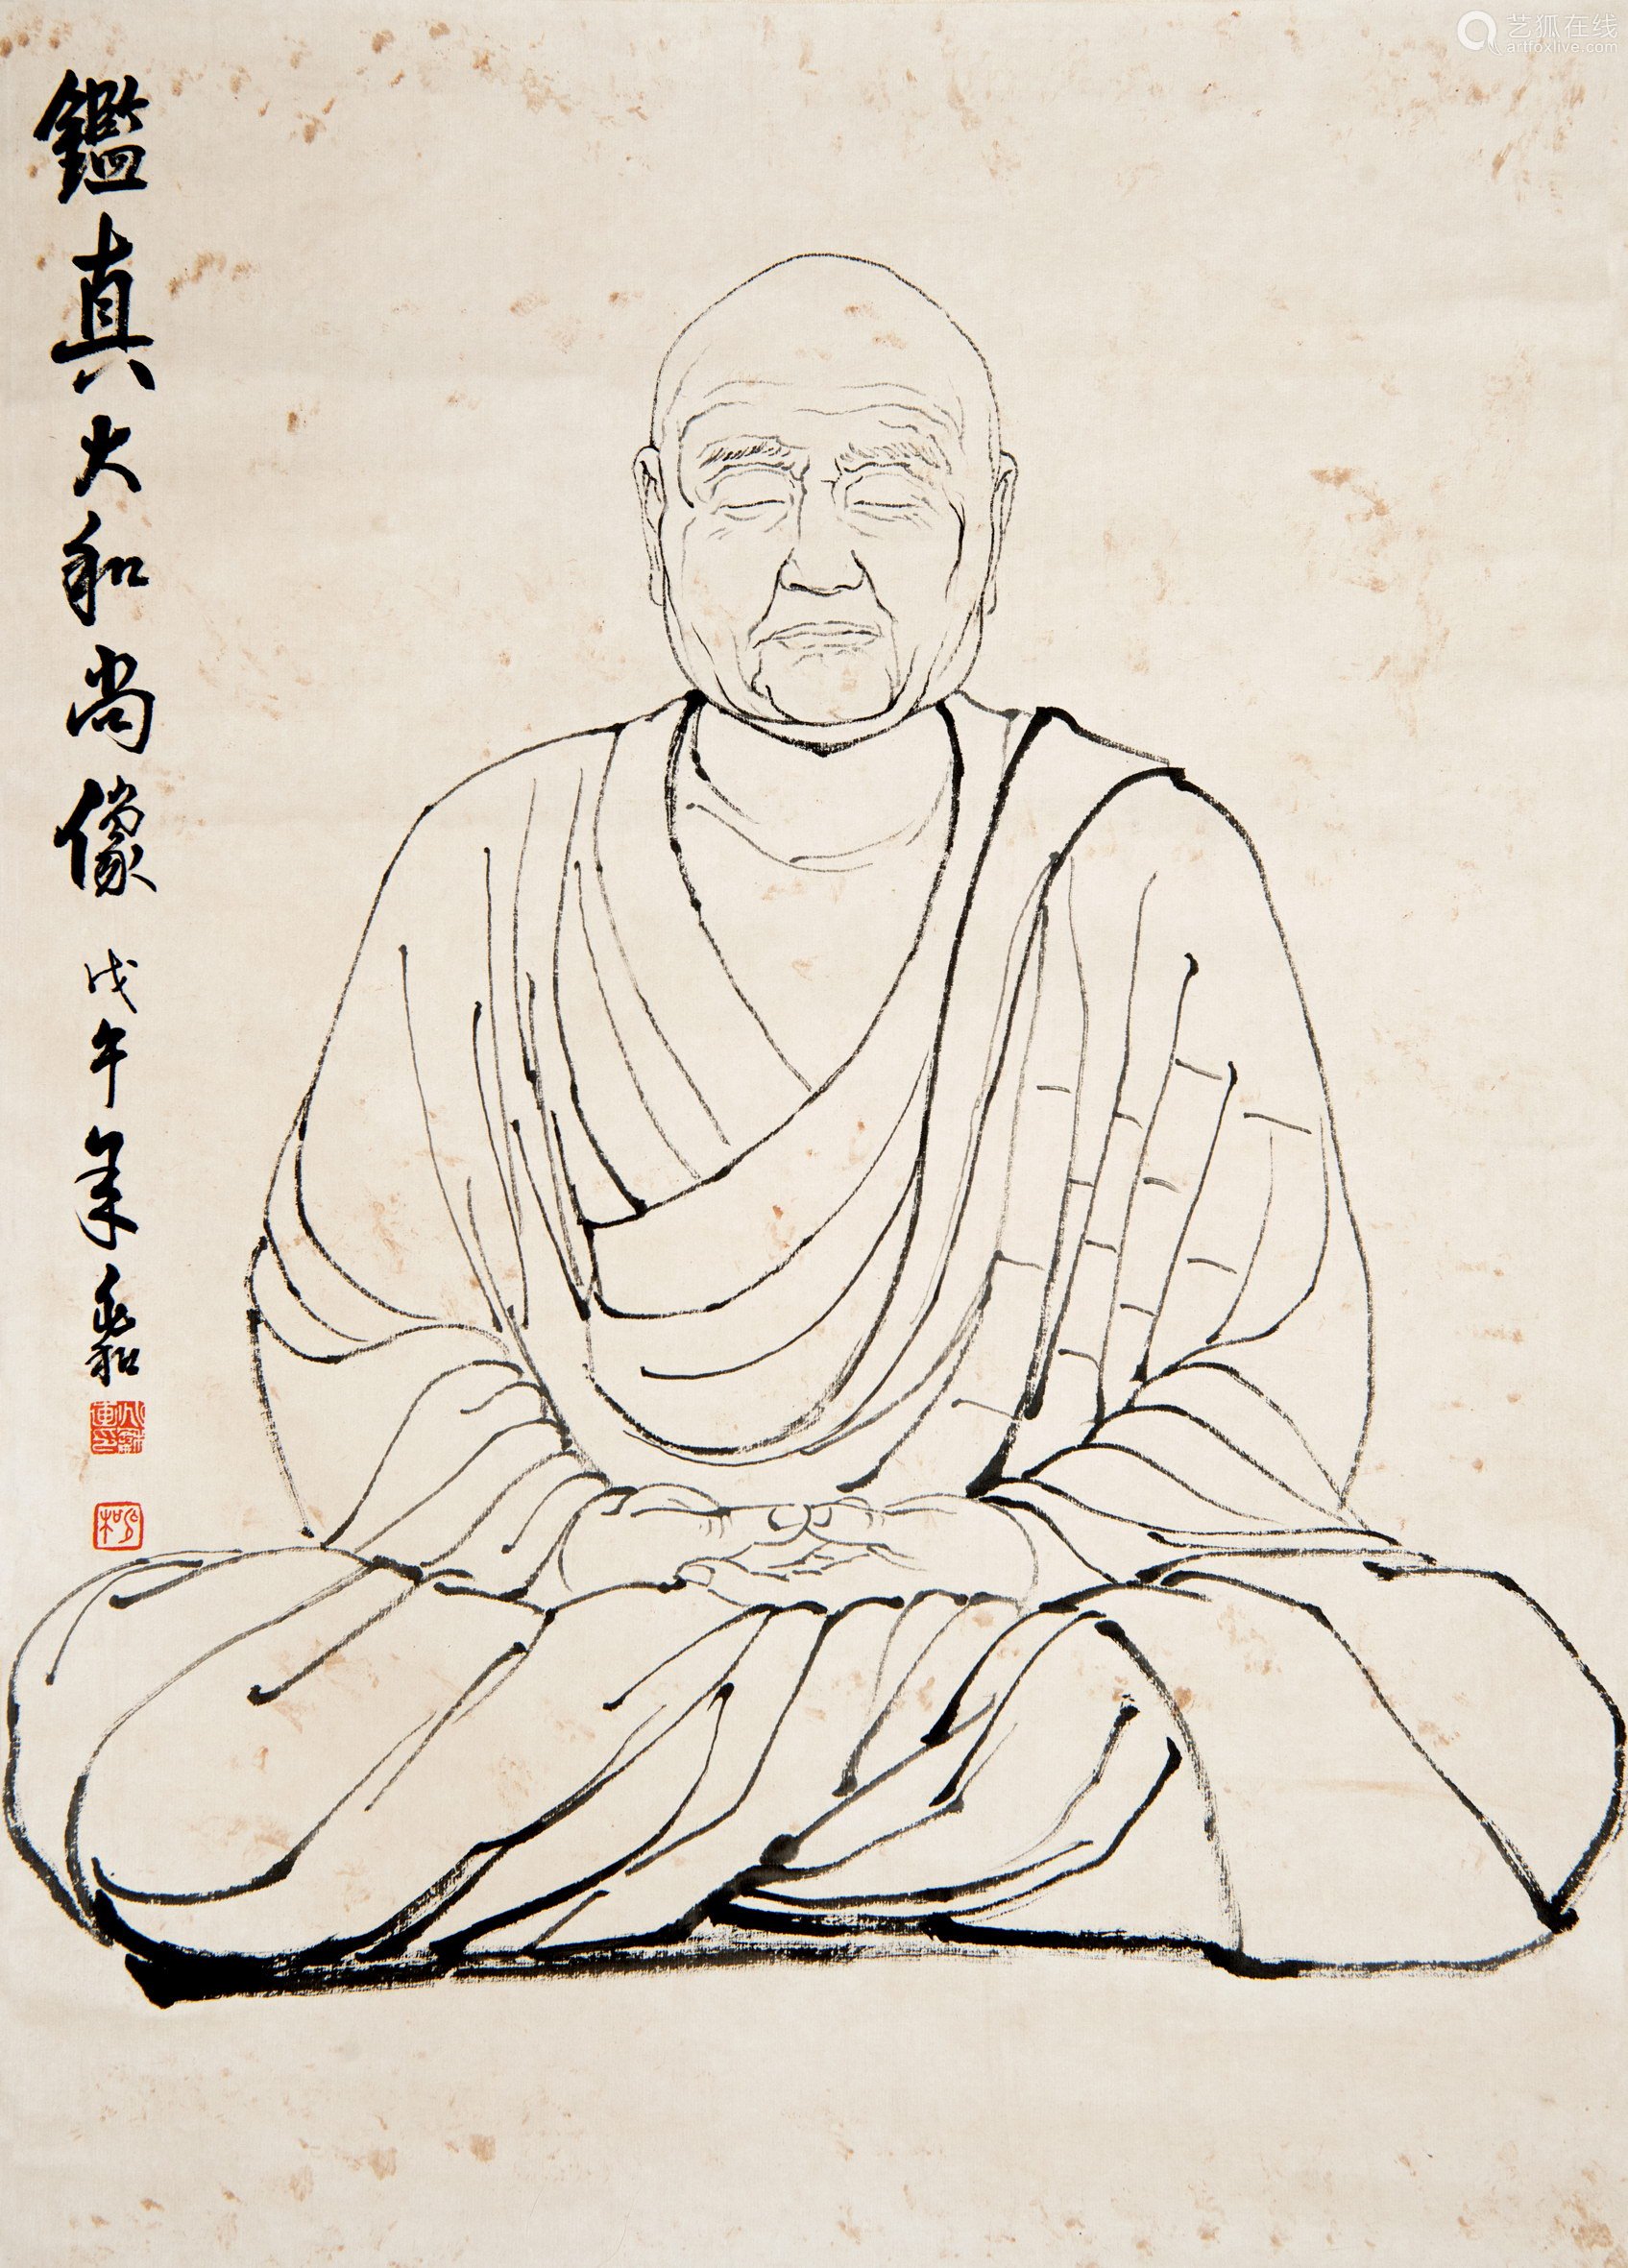 艺狐在线
artfoxlive.com
鑑真大和尚像
戊午年